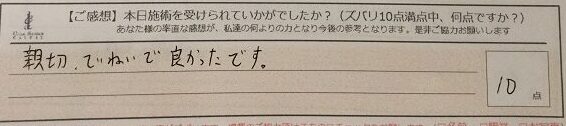 【ご感想】本日施術を受けられていかがでしたか？（ズバリ10点満点中、何点ですか？）
あなた様の率直な感想が、私達の何よりの力となり今後の参考となります。是非ご協力お願いします
親切、ていねいで良かったです。
10
点